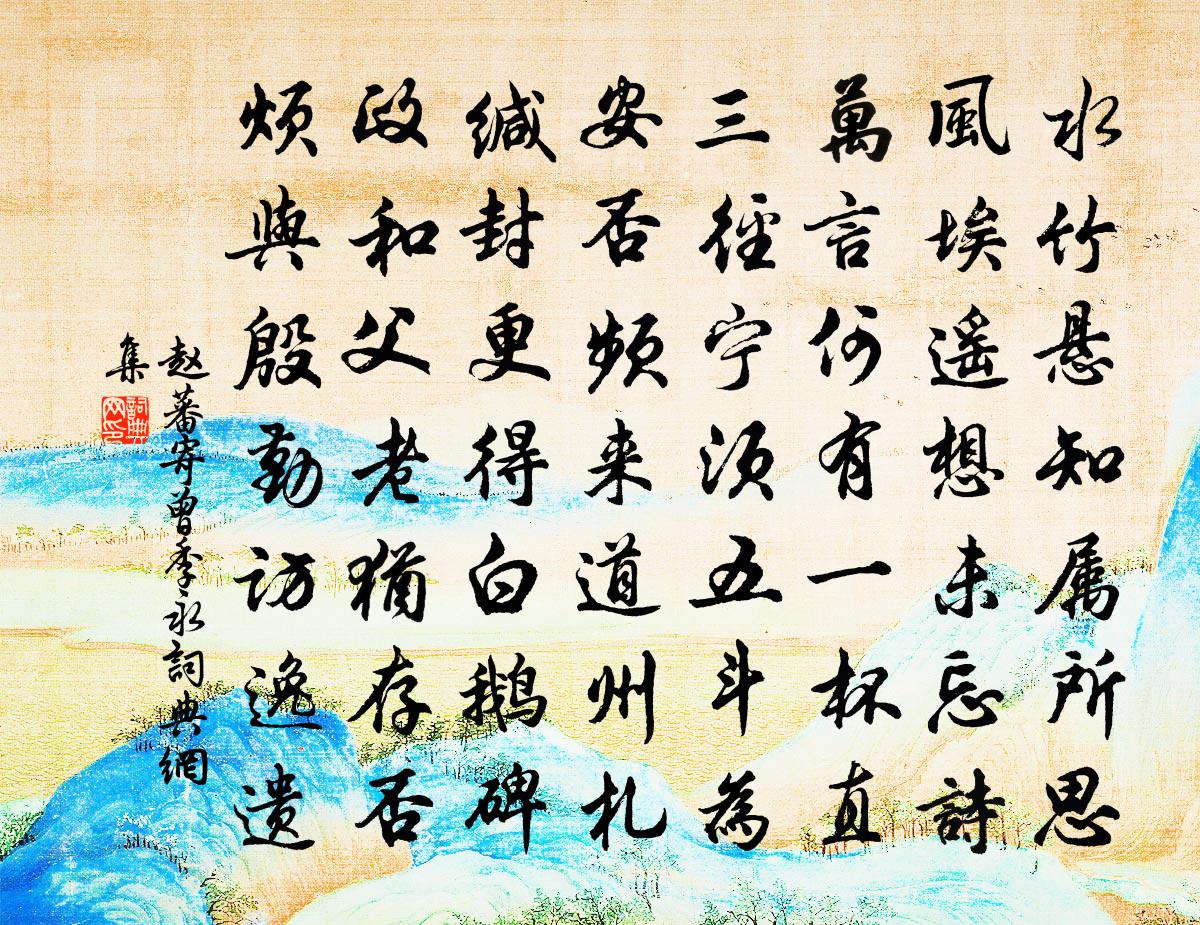 水竹悬知属所思
風埃遥想未忘詩
萬言何有一杯直
三徑宁须五斗為
安否频来道州札
缄封更得白鹅碑
政和父老犹存否
烦與殷勤访逸遗
赵蕃寄曾季永詞典網
集
詞典网印